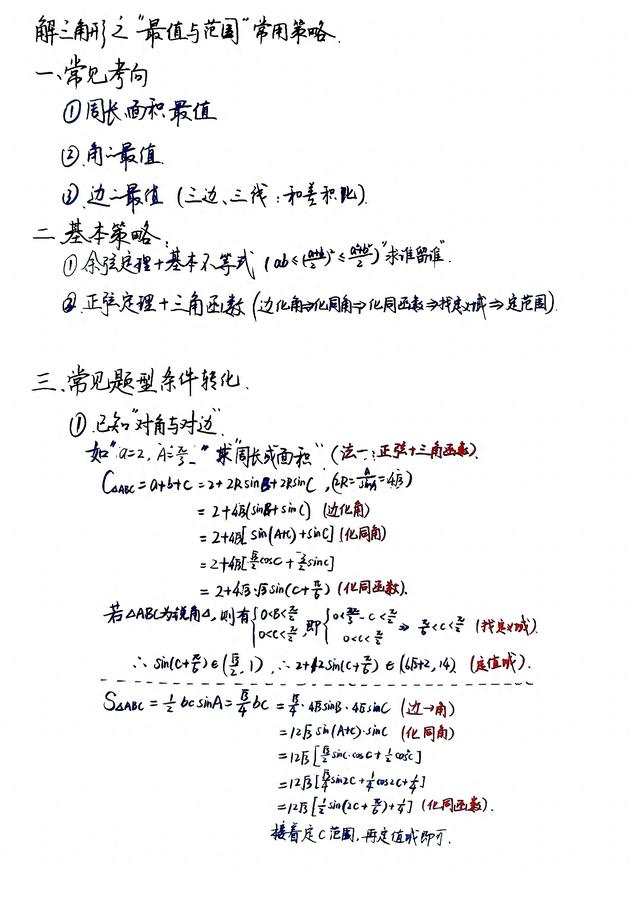 解三角形之“最值与范围”常用策略.
一、常见考向
① 周长、面积最值
② 角之最值.
③ 边之最值 (三边、三线：和差积比).
二、基本策略：
① 余弦定理+基本不等式 (ab≤(a+b/2)²≤a²+b²/2) “求谁留谁”.
② 正弦定理+三角函数 (边化角⇒化同角⇒化同函数⇒找定义域⇒定范围).
三、常见题型条件转化.
① 已知“对角与对边”.
如“a=2, A=π/3”求“周长或面积”. (法一：正弦+三角函数).
C△ABC = a+b+c = 2+2RsinB+2RsinC, (2R=a/sinA=4√3)
= 2+4√3(sinB+sinC) (边化角)
= 2+4√3[sin(A+C)+sinC] (化同角)
= 2+4√3[√3/2cosC+3/2sinC]
= 2+4√3·√3sin(C+π/6) (化同函数).
若△ABC为锐角△, 则有{0<B<π/2, 0<C<π/2, 即{0<2π/3-C<π/2, 0<C<π/2 ⇒ π/6<C<π/2 (找定义域).
∴ sin(C+π/6)∈(√3/2, 1), ∴ 2+12sin(C+π/6)∈(6√3+2, 14). (定值域).
S△ABC = 1/2bcsinA = √3/4bc = √3/4·4√3sinB·4√3sinC (边→角)
=12√3sin(A+C)·sinC (化同角)
=12√3[√3/2sinC·cosC+1/2cos²C]
=12√3[√3/4sin2C+1/4cos2C+1/4]
=12√3[1/2sin(2C+π/6)+1/4] (化同函数).
接着定C范围, 再定值域即可.